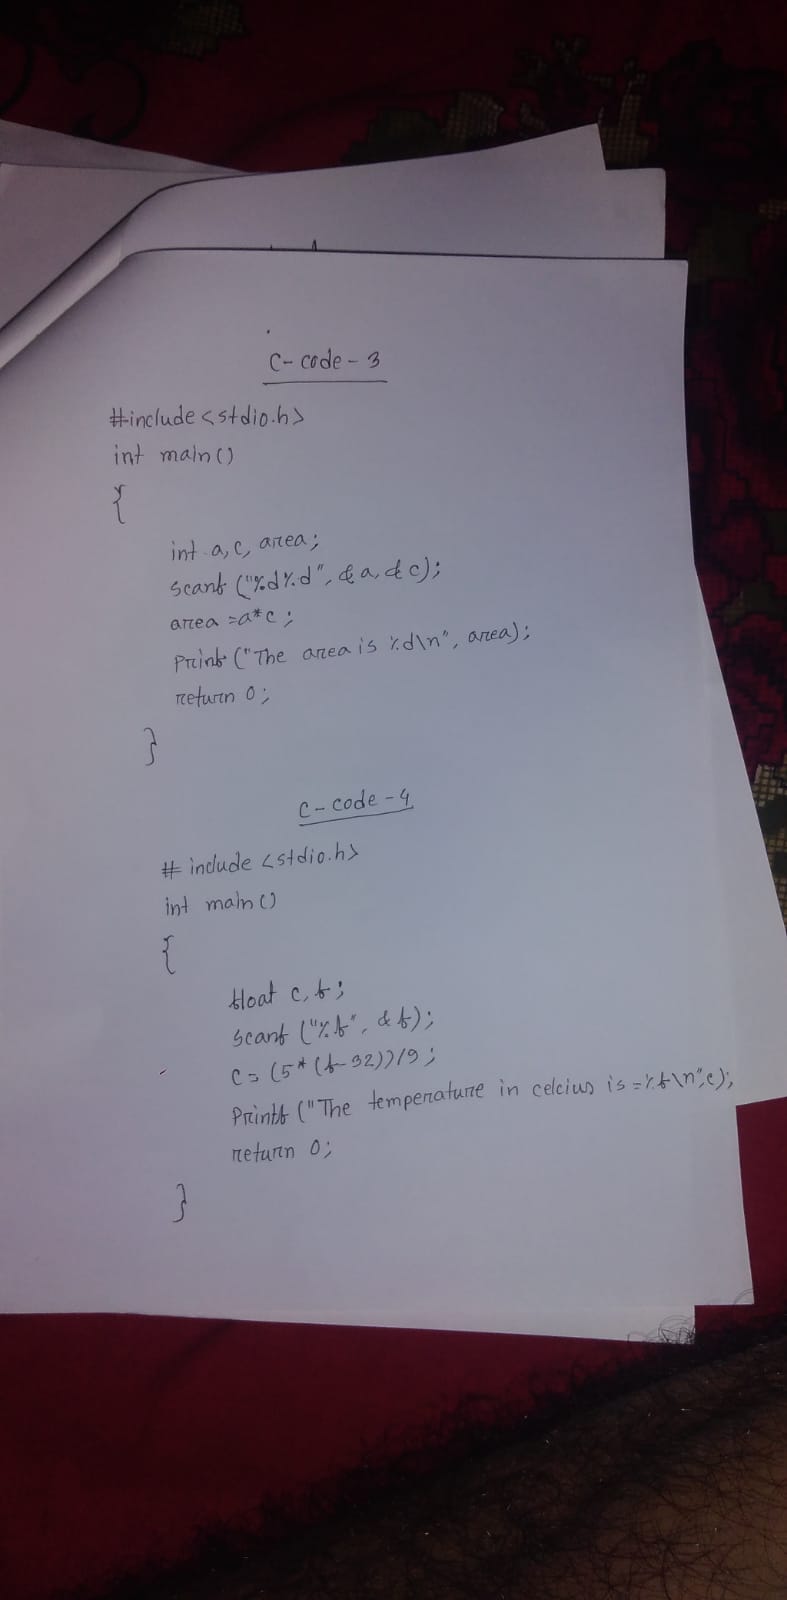 C-code-3
#include<stdio.h>
int main()
{
int a,c, area;
scanf ("%d%d", &a, &c);
area =a*c;
Printf ("The area is %d\n", area);
return 0;
}
C-code-4
# include <stdio.h>
int main()
{
float c, f;
scanf ("%f", &f);
c= (5*(f-32))/9;
Printf ("The temperature in celcius is =%f\n",c);
return 0;
}